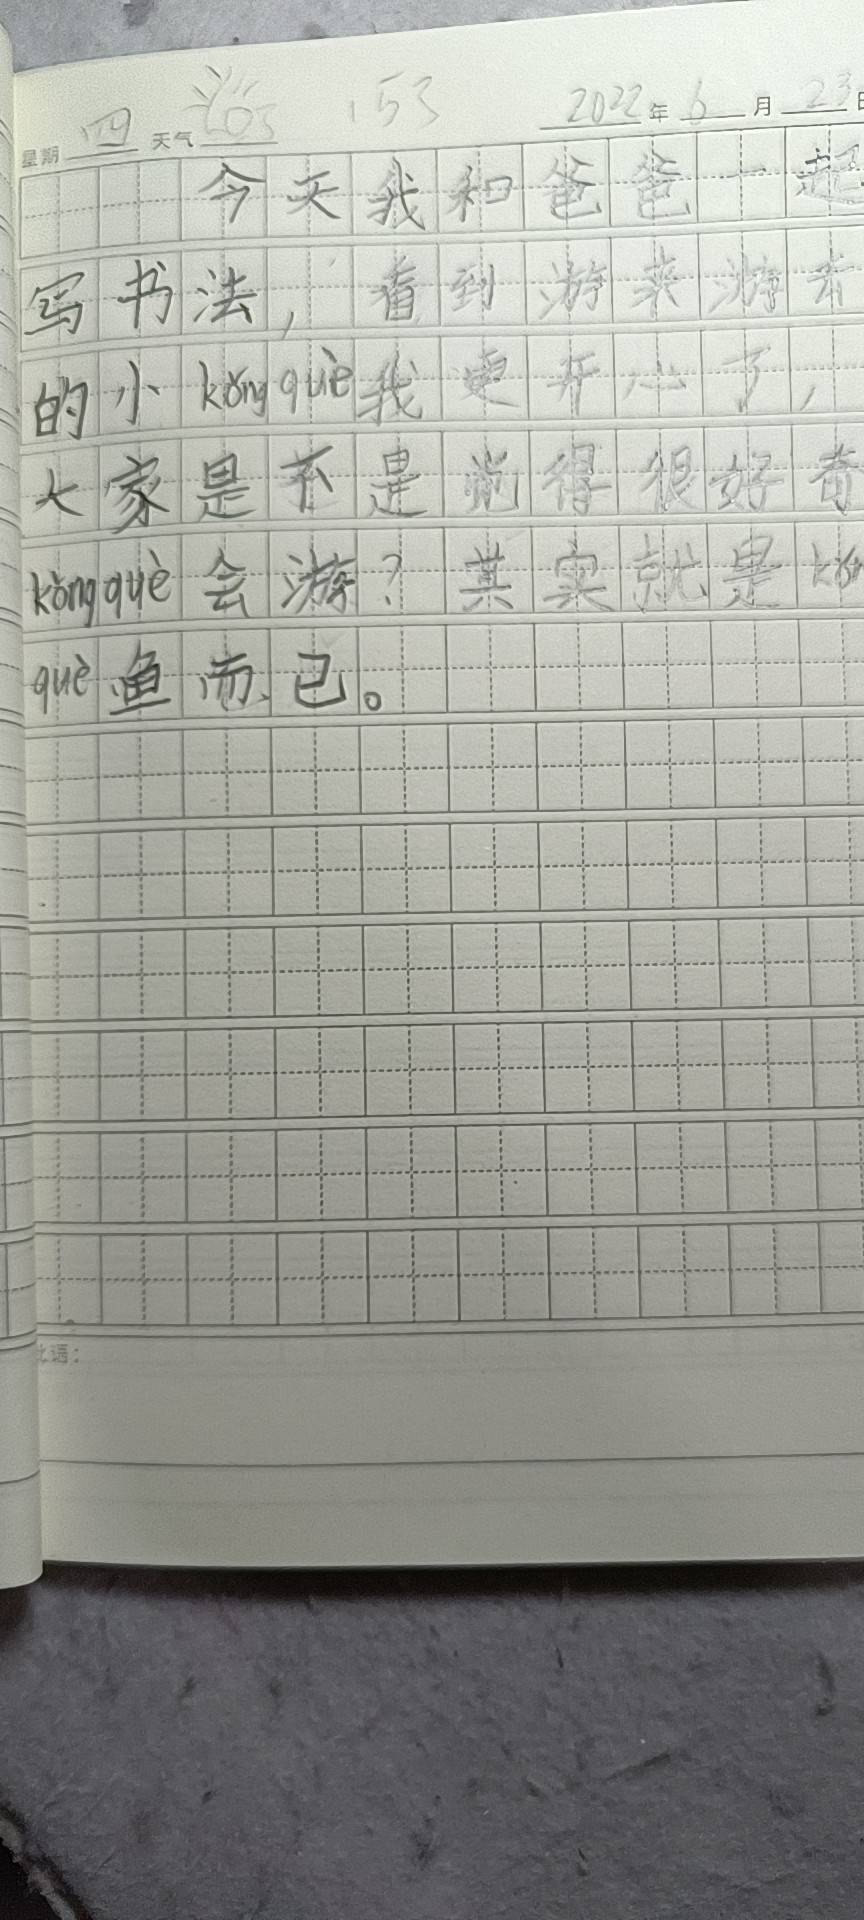 星期 四 天气 153 2022 年 6 月 23 日
今天我和爸爸一起
写书法，看到游来游去
的小kǒngquè我更开心了，
大家是不是觉得很好奇
kǒngquè会游？其实就是
què鱼而已。
批语：